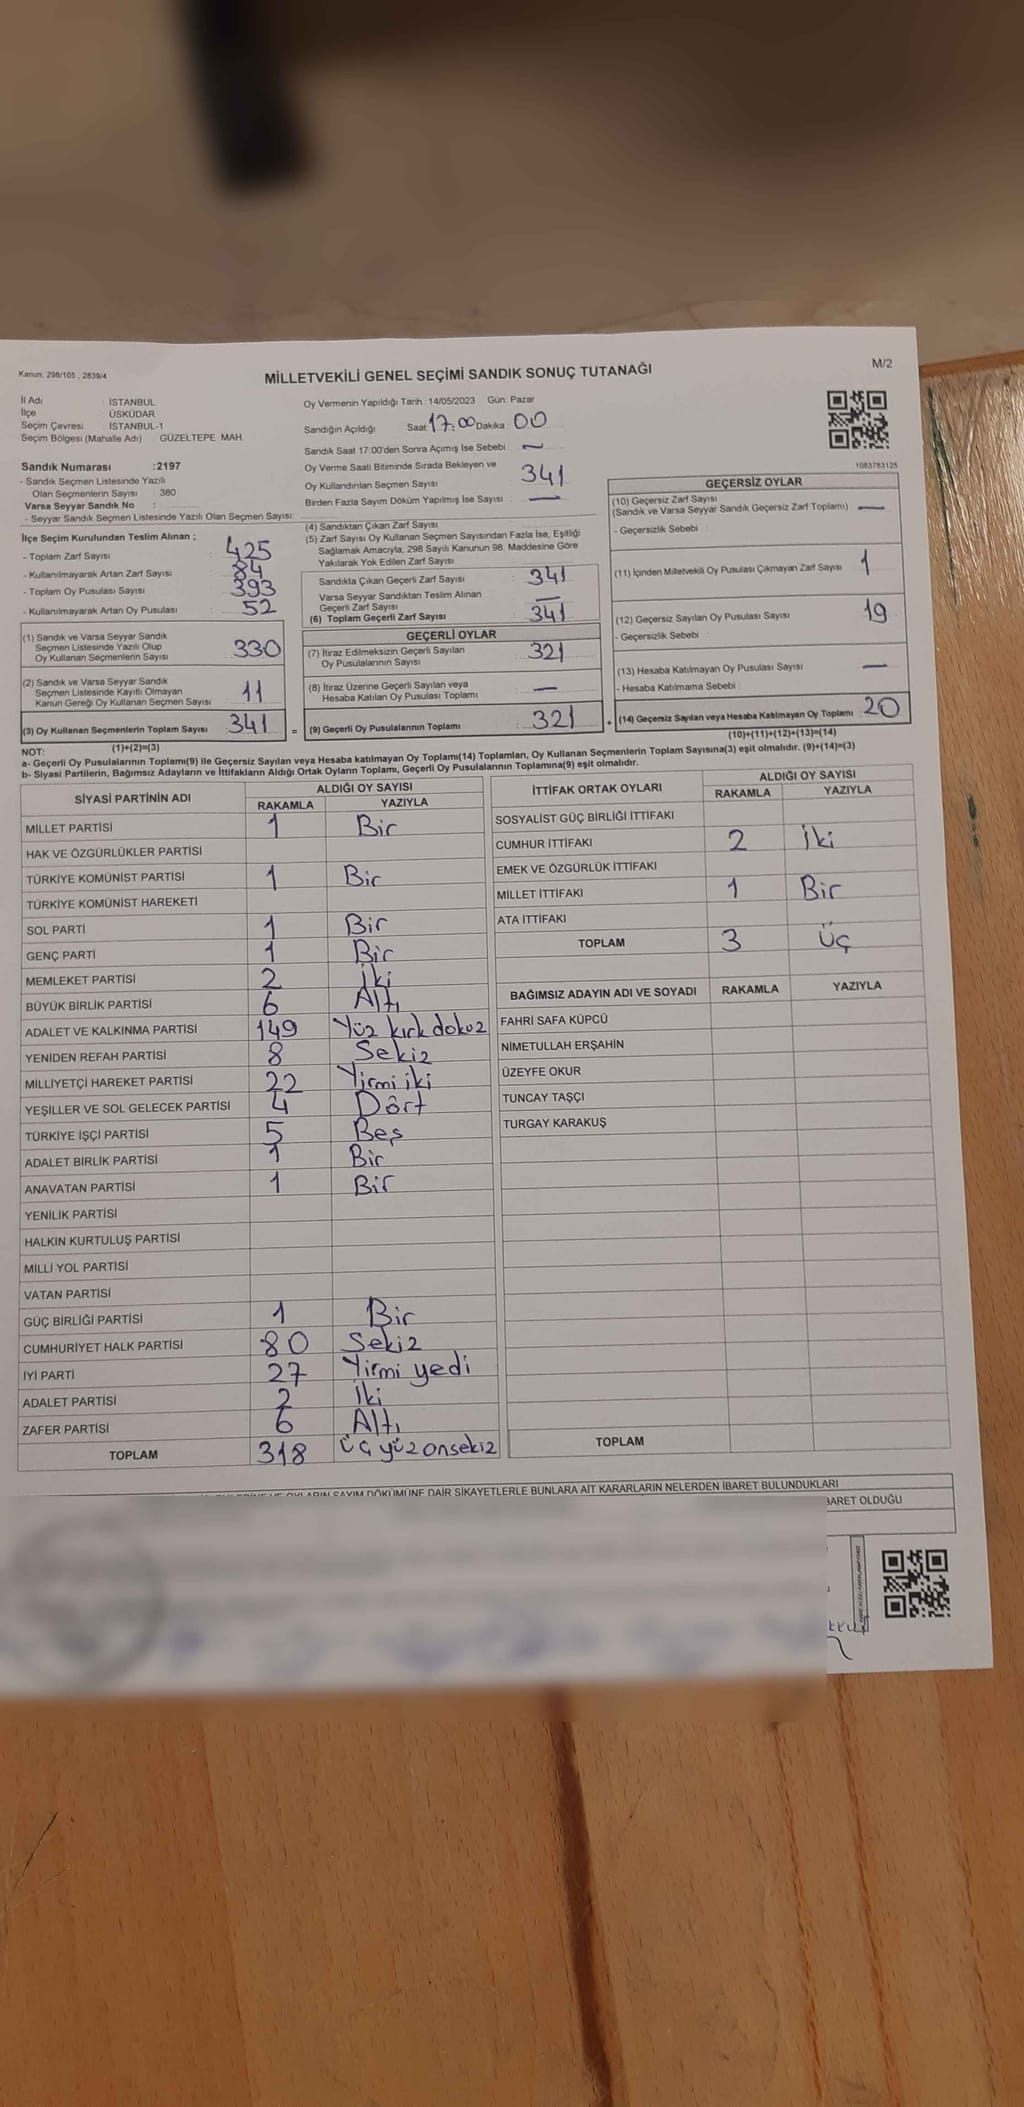 Kanun: 298/105 , 2839/4
MİLLETVEKİLİ GENEL SEÇİMİ SANDIK SONUÇ TUTANAĞI
M/2
İl Adı : İSTANBUL
İlçe : ÜSKÜDAR
Seçim Çevresi : İSTANBUL-1
Seçim Bölgesi (Mahalle Adı) GÜZELTEPE MAH.
Sandık Numarası :2197
- Sandık Seçmen Listesinde Yazılı
Olan Seçmenlerin Sayısı : 380
Varsa Seyyar Sandık No :
- Seyyar Sandık Seçmen Listesinde Yazılı Olan Seçmen Sayısı:
Oy Vermenin Yapıldığı Tarih : 14/05/2023 Gün: Pazar
Sandığın Açıldığı Saat 17:00 Dakika 00
Sandık Saat 17:00'den Sonra Açımış İse Sebebi —
Oy Verme Saati Bitiminde Sırada Bekleyen ve
Oy Kullandırılan Seçmen Sayısı : 341
Birden Fazla Sayım Döküm Yapılmış İse Sayısı : —
1083783125
İlçe Seçim Kurulundan Teslim Alınan ;
- Toplam Zarf Sayısı : 425
- Kullanılmayarak Artan Zarf Sayısı : 84
- Toplam Oy Pusulası Sayısı : 393
- Kullanılmayarak Artan Oy Pusulası : 52
(1) Sandık ve Varsa Seyyar Sandık
Seçmen Listesinde Yazılı Olup
Oy Kullanan Seçmenlerin Sayısı 330
(2) Sandık ve Varsa Seyyar Sandık
Seçmen Listesinde Kayıtlı Olmayan
Kanun Gereği Oy Kullanan Seçmen Sayısı : 11
(3) Oy Kullanan Seçmenlerin Toplam Sayısı : 341
(1)+(2)=(3)
(4) Sandıktan Çıkan Zarf Sayısı
(5) Zarf Sayısı Oy Kullanan Seçmen Sayısından Fazla İse, Eşitliği
Sağlamak Amacıyla, 298 Sayılı Kanunun 98. Maddesine Göre
Yakılarak Yok Edilen Zarf Sayısı
Sandıkta Çıkan Geçerli Zarf Sayısı : 341
Varsa Seyyar Sandıktan Teslim Alınan
Geçerli Zarf Sayısı : —
(6) Toplam Geçerli Zarf Sayısı : 341
GEÇERLİ OYLAR
(7) İtiraz Edilmeksizin Geçerli Sayılan
Oy Pusulalarının Sayısı : 321
(8) İtiraz Üzerine Geçerli Sayılan veya
Hesaba Katılan Oy Pusulası Toplamı : —
= (9) Geçerli Oy Pusulalarının Toplamı : 321
GEÇERSİZ OYLAR
(10) Geçersiz Zarf Sayısı
(Sandık ve Varsa Seyyar Sandık Geçersiz Zarf Toplamı) —
- Geçersizlik Sebebi :
(11) İçinden Milletvekili Oy Pusulası Çıkmayan Zarf Sayısı 1
(12) Geçersiz Sayılan Oy Pusulası Sayısı 19
- Geçersizlik Sebebi :
(13) Hesaba Katılmayan Oy Pusulası Sayısı —
- Hesaba Katılmama Sebebi :
(14) Geçersiz Sayılan veya Hesaba Katılmayan Oy Toplamı 20
(10)+(11)+(12)+(13)=(14)
NOT:
a- Geçerli Oy Pusulalarının Toplamı(9) ile Geçersiz Sayılan veya Hesaba katılmayan Oy Toplamı(14) Toplamları, Oy Kullanan Seçmenlerin Toplam Sayısına(3) eşit olmalıdır. (9)+(14)=(3)
b- Siyasi Partilerin, Bağımsız Adayların ve İttifakların Aldığı Ortak Oyların Toplamı, Geçerli Oy Pusulalarının Toplamına(9) eşit olmalıdır.
SİYASİ PARTİNİN ADI ALDIĞI OY SAYISI
RAKAMLA YAZIYLA
MİLLET PARTİSİ 1 Bir
HAK VE ÖZGÜRLÜKLER PARTİSİ
TÜRKİYE KOMÜNİST PARTİSİ 1 Bir
TÜRKİYE KOMÜNİST HAREKETİ
SOL PARTİ 1 Bir
GENÇ PARTİ 1 Bir
MEMLEKET PARTİSİ 2 İki
BÜYÜK BİRLİK PARTİSİ 6 Altı
ADALET VE KALKINMA PARTİSİ 149 Yüz kırk dokuz
YENİDEN REFAH PARTİSİ 8 Sekiz
MİLLİYETÇİ HAREKET PARTİSİ 22 Yirmi iki
YEŞİLLER VE SOL GELECEK PARTİSİ 4 Dört
TÜRKİYE İŞÇİ PARTİSİ 5 Beş
ADALET BİRLİK PARTİSİ 1 Bir
ANAVATAN PARTİSİ 1 Bir
YENİLİK PARTİSİ
HALKIN KURTULUŞ PARTİSİ
MİLLİ YOL PARTİSİ
VATAN PARTİSİ
GÜÇ BİRLİĞİ PARTİSİ 1 Bir
CUMHURİYET HALK PARTİSİ 80 Sekiz
İYİ PARTİ 27 Yirmi yedi
ADALET PARTİSİ 2 İki
ZAFER PARTİSİ 6 Altı
TOPLAM 318 üç yüz onsekiz
İTTİFAK ORTAK OYLARI ALDIĞI OY SAYISI
RAKAMLA YAZIYLA
SOSYALİST GÜÇ BİRLİĞİ İTTİFAKI
CUMHUR İTTİFAKI 2 İki
EMEK VE ÖZGÜRLÜK İTTİFAKI
MİLLET İTTİFAKI 1 Bir
ATA İTTİFAKI
TOPLAM 3 üç
BAĞIMSIZ ADAYIN ADI VE SOYADI RAKAMLA YAZIYLA
FAHRİ SAFA KÜPCÜ
NİMETULLAH ERŞAHİN
ÜZEYFE OKUR
TUNCAY TAŞÇI
TURGAY KARAKUŞ
TOPLAM
OYLARIN SAYIM DÖKÜMÜNE DAİR ŞİKAYETLERLE BUNLARA AİT KARARLARIN NELERDEN İBARET BULUNDUKLARI
BARET OLDUĞU